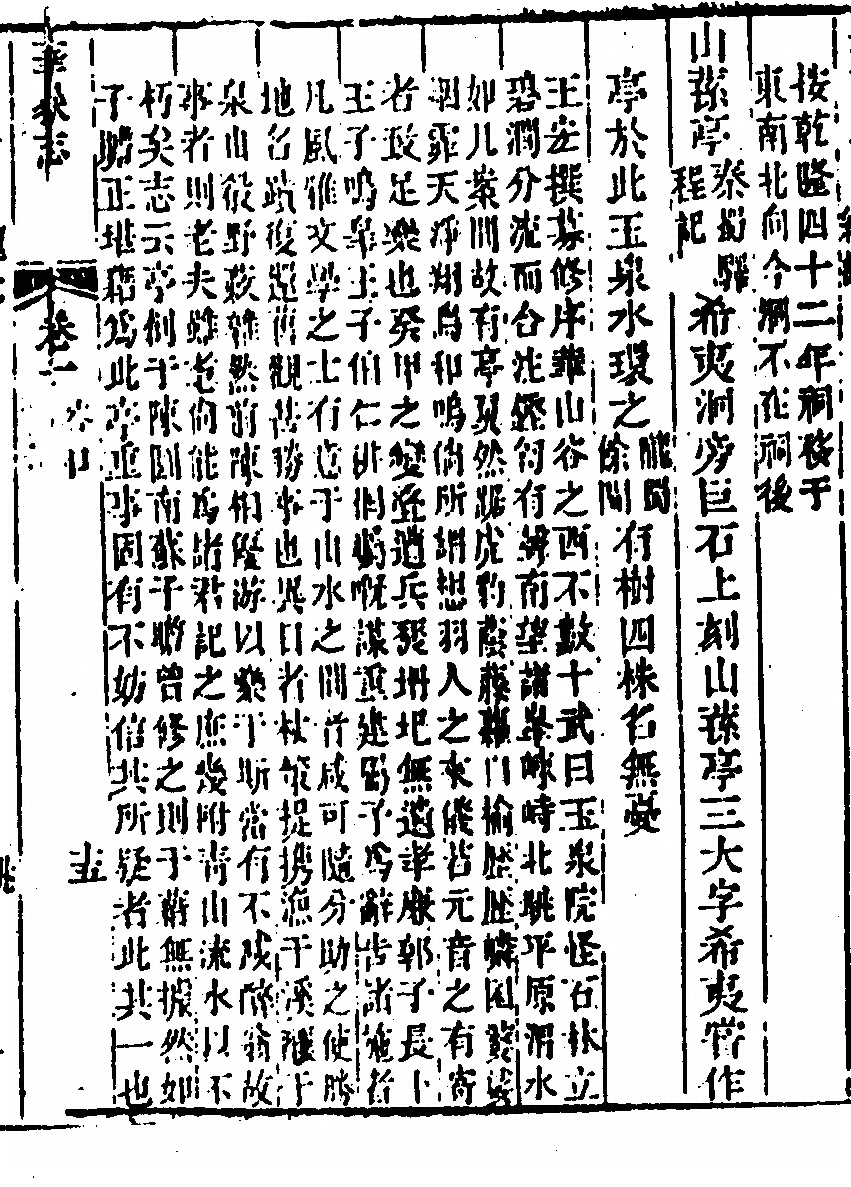 按乾隆四十二年祠移于
東南北向今洞不在祠後
山蓀亭 秦蜀驛程記 希夷洞旁巨石上刻山蓀亭三大字希夷嘗作
亭於此玉泉水環之 隴蜀餘聞 有樹四株名無憂
王安撰募修序華山谷之西不數十武曰玉泉院怪石林立
碧澗分流而合注鏗訇有聲南望諸峯眎時北眺平原渭水
如几案間故有亭翼然踞虎豹蔭藤蘿白榆歷歷
烟霏天淨翔鳥和鳴倘所謂想羽人之來僊若元音之有寄
者致足樂也癸甲之變迭遘兵燹坍圯無遺孝廉郭子長卜
王子鳴皋王子伯仁俳徊慨謀重建子為辭告諸遊者
凡風雅文學之士有意于山水之間者咸可隨分助之使勝
地名蹟復還舊觀甚勝事也異日者杖策提攜漁于溪
泉山殽野蔌雜然前陳徊僊游以樂于斯當有不減醉翁故
事者則老夫雖老尚能為諸君記之庶幾附青山流水以不
朽矣志云亭創于陳圖南蘇子瞻曾修之則于舊無據然如
子瞻正堪藉為此亭重事固有不妨信其所疑者此其一也
華嶽志 卷一 名目 十五